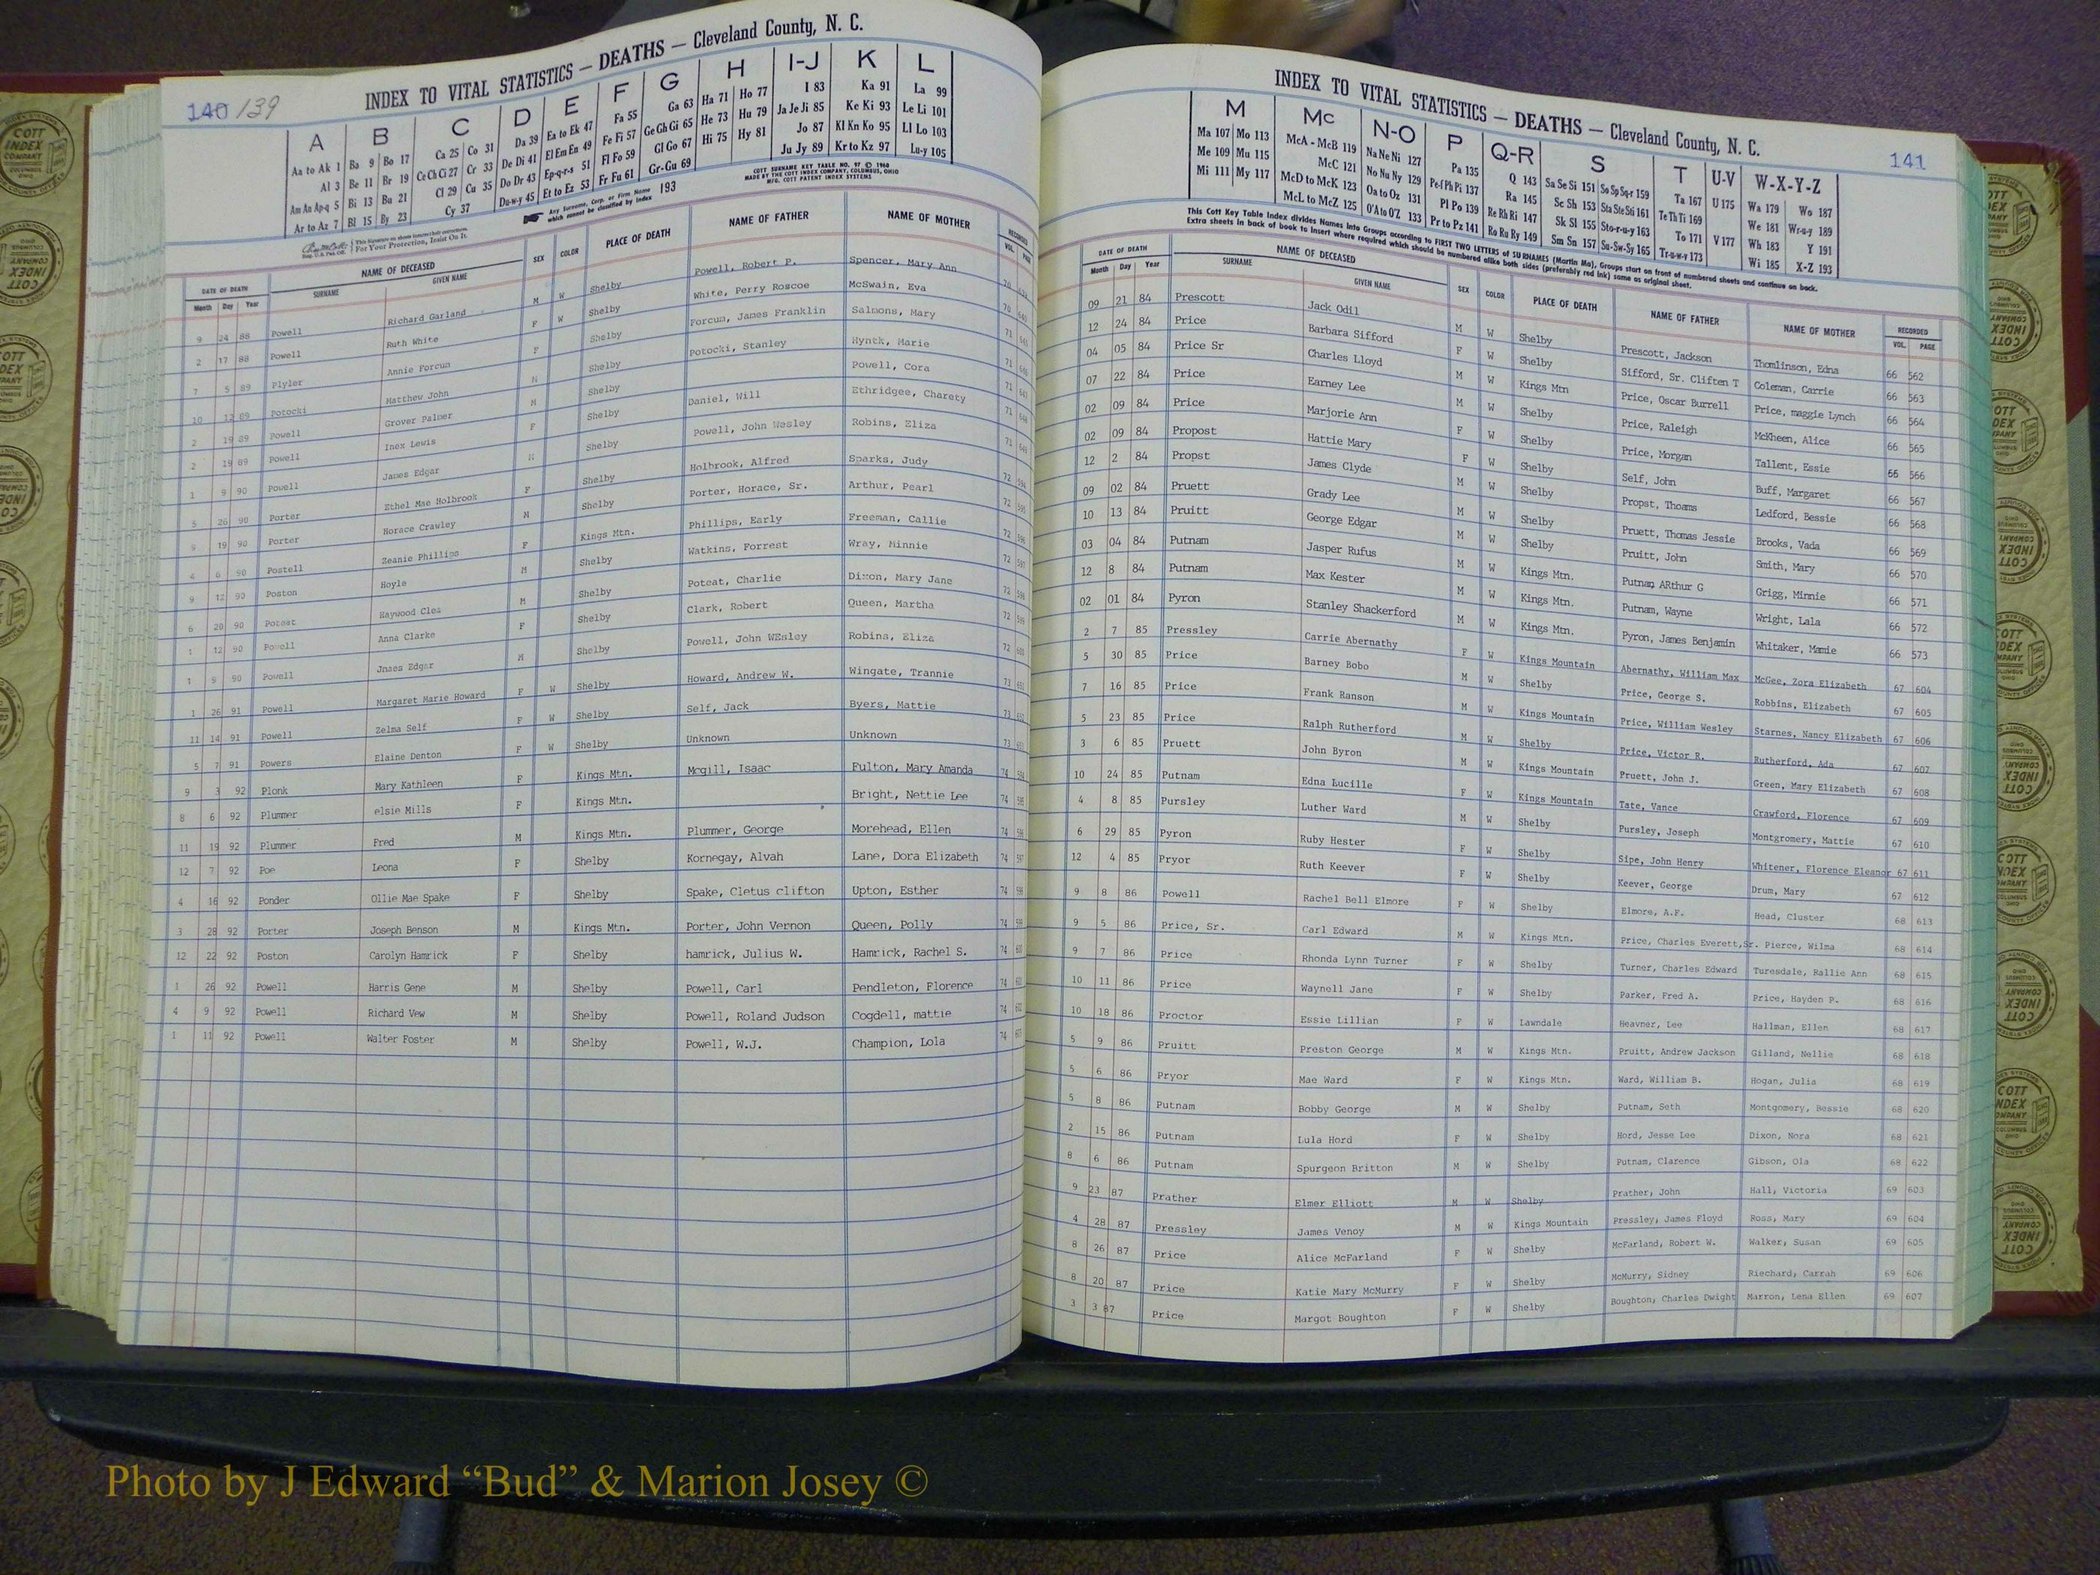 140 139
INDEX TO VITAL STATISTICS — DEATHS — Cleveland County, N. C.
A B C D E F G H I-J K L
Aa to Ak 1 Ba 9 Bo 17 Ca 25 Co 31 Da 39 Ea to Ek 47 Fa 55 Ga 63 Ha 71 Ho 77 I 83 Ka 91 La 99
Al 3 Be 11 Br 19 Ce Ch Ci 27 Cr 33 De Di 41 El Em En 49 Fe Fi 57 Ge Gh Gi 65 He 73 Hu 79 Ja Je Ji 85 Ke Ki 93 Le Li 101
Am An Ap-q 5 Bi 13 Bu 21 Cl 29 Cu 35 Do Dr 43 Ep-q-r-s 51 Fl Fo 59 Gl Go 67 Hi 75 Hy 81 Jo 87 Kl Kn Ko 95 Ll Lo 103
Ar to Az 7 Bl 15 By 23 Cy 37 Du-w-y 45 Et to Ez 53 Fr Fu 61 Gr-Gu 69 Ju Jy 89 Kr to Kz 97 Lu-y 105
COTT SURNAME KEY TABLE NO. 97 © 1960
MADE BY THE COTT INDEX COMPANY, COLUMBUS, OHIO
MFG. COTT PATENT INDEX SYSTEMS
Any Surname, Corp. or Firm Name which cannot be classified by index 193
For Your Protection, Insist On It.
DATE OF DEATH NAME OF DECEASED SEX COLOR PLACE OF DEATH NAME OF FATHER NAME OF MOTHER RECORDED
Month Day Year SURNAME GIVEN NAME VOL. PAGE
9 24 88 Powell Richard Garland M W Shelby Powell, Robert P. Spencer, Mary Ann 70
2 17 88 Powell Ruth White F W Shelby White, Perry Roscoe McSwain, Eva 70
7 5 89 Plyler Annie Forcum F Shelby Forcum, James Franklin Salmons, Mary 71
10 12 89 Potocki Matthew John M Shelby Potocki, Stanley Hynek, Marie 71
2 19 89 Powell Grover Palmer M Shelby Powell, Cora 71
2 19 89 Powell Inex Lewis F Shelby Daniel, Will Ethridgee, Charety 71
1 9 90 Powell James Edgar M Shelby Powell, John Wesley Robins, Eliza 71
5 26 90 Porter Ethel Mae Holbrook F Shelby Holbrook, Alfred Sparks, Judy 72
9 19 90 Porter Horace Crawley M Shelby Porter, Horace, Sr. Arthur, Pearl 72
4 6 90 Postell Zeanie Phillips F Kings Mtn. Phillips, Early Freeman, Callie 72
9 12 90 Poston Hoyle M Shelby Watkins, Forrest Wray, Minnie 72
6 20 90 Poteat Haywood Clea M Shelby Poteat, Charlie Dixon, Mary Jane 72
1 12 90 Powell Anna Clarke F Shelby Clark, Robert Queen, Martha 72
1 9 90 Powell Jnaes Edgar M Shelby Powell, John WEsley Robins, Eliza 72
1 26 91 Powell Margaret Marie Howard F W Shelby Howard, Andrew W. Wingate, Trannie 73
11 14 91 Powell Zelma Self F W Shelby Self, Jack Byers, Mattie 73
5 7 91 Powers Elaine Denton F W Shelby Unknown Unknown 73
9 3 92 Plonk Mary Kathleen F Kings Mtn. Mcgill, Isaac Fulton, Mary Amanda 74
8 6 92 Plummer elsie Mills F Kings Mtn. Bright, Nettie Lee 74
11 19 92 Plummer Fred M Kings Mtn. Plummer, George Morehead, Ellen 74
12 7 92 Poe Leona F Shelby Kornegay, Alvah Lane, Dora Elizabeth 74
4 16 92 Ponder Ollie Mae Spake F Shelby Spake, Cletus clifton Upton, Esther 74
3 28 92 Porter Joseph Benson M Kings Mtn. Porter, John Vernon Queen, Polly 74
12 22 92 Poston Carolyn Hamrick F Shelby hamrick, Julius W. Hamrick, Rachel S. 74
1 26 92 Powell Harris Gene M Shelby Powell, Carl Pendleton, Florence 74
4 9 92 Powell Richard Vew M Shelby Powell, Roland Judson Cogdell, mattie 74
1 11 92 Powell Walter Foster M Shelby Powell, W.J. Champion, Lola 74
INDEX TO VITAL STATISTICS — DEATHS — Cleveland County, N. C.
141
M Mc N-O P Q-R S T U-V W-X-Y-Z
Ma 107 Mo 113 McA - McB 119 Na Ne Ni 127 Pa 135 Q 143 Sa Se Si 151 So Sp Sq-r 159 Ta 167 U 175 Wa 179 Wo 187
Me 109 Mu 115 McC 121 No Nu Ny 129 Pe-f Ph Pi 137 Ra 145 Sc Sh 153 Sta Ste Sti 161 Te Th Ti 169 We 181 Wr-u-y 189
Mi 111 My 117 McD to McK 123 Oa to Oz 131 Pl Po 139 Re Rh Ri 147 Sk Sl 155 Sto-r-u-y 163 To 171 V 177 Wh 183 Y 191
McL to McZ 125 O'A to O'Z 133 Pr to Pz 141 Ro Ru Ry 149 Sm Sn 157 Su-Sw-Sy 165 Tr-u-w-y 173 Wi 185 X-Z 193
This Cott Key Table Index divides Names into Groups according to FIRST TWO LETTERS of SURNAMES (Martin Ma), Groups start on front of numbered sheets and continue on back.
Extra sheets in back of book to Insert where required which should be numbered alike both sides (preferably red ink) same as original sheet.
DATE OF DEATH NAME OF DECEASED SEX COLOR PLACE OF DEATH NAME OF FATHER NAME OF MOTHER RECORDED
Month Day Year SURNAME GIVEN NAME VOL. PAGE
09 21 84 Prescott Jack Odil M W Shelby Prescott, Jackson Thomlinson, Edna 66 562
12 24 84 Price Barbara Sifford F W Shelby Sifford, Sr. Cliften T Coleman, Carrie 66 563
04 05 84 Price Sr Charles Lloyd M W Kings Mtn Price, Oscar Burrell Price, maggie Lynch 66 564
07 22 84 Price Earney Lee M W Shelby Price, Raleigh McKheen, Alice 66 565
02 09 84 Price Marjorie Ann F W Shelby Price, Morgan Tallent, Essie 66 566
02 09 84 Propost Hattie Mary F W Shelby Self, John Buff, Margaret 66 567
12 2 84 Propst James Clyde M W Shelby Propst, Thoams Ledford, Bessie 66 568
09 02 84 Pruett Grady Lee M W Shelby Pruett, Thomas Jessie Brooks, Vada 66 569
10 13 84 Pruitt George Edgar M W Shelby Pruitt, John Smith, Mary 66 570
03 04 84 Putnam Jasper Rufus M W Kings Mtn. Putnam ARthur G Grigg, Minnie 66 571
12 8 84 Putnam Max Kester M W Kings Mtn. Putnam, Wayne Wright, Lala 66 572
02 01 84 Pyron Stanley Shackerford M W Kings Mtn. Pyron, James Benjamin Whitaker, Mamie 66 573
2 7 85 Pressley Carrie Abernathy F W Kings Mountain Abernathy, William Max McGee, Zora Elizabeth 67 604
5 30 85 Price Barney Bobo M W Shelby Price, George S. Robbins, Elizabeth 67 605
7 16 85 Price Frank Ranson M W Kings Mountain Price, William Wesley Starnes, Nancy Elizabeth 67 606
5 23 85 Price Ralph Rutherford M W Shelby Price, Victor R. Rutherford, Ada 67 607
3 6 85 Pruett John Byron M W Kings Mountain Pruett, John J. Green, Mary Elizabeth 67 608
10 24 85 Putnam Edna Lucille F W Kings Mountain Tate, Vance Crawford, Florence 67 609
4 8 85 Pursley Luther Ward M W Shelby Pursley, Joseph Montgromery, Mattie 67 610
6 29 85 Pyron Ruby Hester F W Shelby Sipe, John Henry Whitener, Florence Eleanor 67 611
12 4 85 Pryor Ruth Keever F W Shelby Keever, George Drum, Mary 67 612
9 8 86 Powell Rachel Bell Elmore F W Shelby Elmore, A.F. Head, Cluster 68 613
9 5 86 Price, Sr. Carl Edward M W Kings Mtn. Price, Charles Everett,Sr. Pierce, Wilma 68 614
9 7 86 Price Rhonda Lynn Turner F W Shelby Turner, Charles Edward Turesdale, Rallie Ann 68 615
10 11 86 Price Waynell Jane F W Shelby Parker, Fred A. Price, Hayden P. 68 616
10 18 86 Proctor Essie Lillian F W Lawndale Heavner, Lee Hallman, Ellen 68 617
5 9 86 Pruitt Preston George M W Kings Mtn. Pruitt, Andrew Jackson Gilland, Nellie 68 618
5 6 86 Pryor Mae Ward F W Kings Mtn. Ward, William B. Hogan, Julia 68 619
5 8 86 Putnam Bobby George M W Shelby Putnam, Seth Montgomery, Bessie 68 620
2 15 86 Putnam Lula Hord F W Shelby Hord, Jesse Lee Dixon, Nora 68 621
8 6 86 Putnam Spurgeon Britton M W Shelby Putnam, Clarence Gibson, Ola 68 622
9 23 87 Prather Elmer Elliott M W Shelby Prather, John Hall, Victoria 69 603
4 28 87 Pressley James Venoy M W Kings Mountain Pressley, James Floyd Ross, Mary 69 604
8 26 87 Price Alice McFarland F W Shelby McFarland, Robert W. Walker, Susan 69 605
8 20 87 Price Katie Mary McMurry F W Shelby McMurry, Sidney Riechard, Carrah 69 606
3 3 87 Price Margot Boughton F W Shelby Boughton, Charles Dwight Marron, Lena Ellen 69 607
Photo by J Edward “Bud” & Marion Josey ©